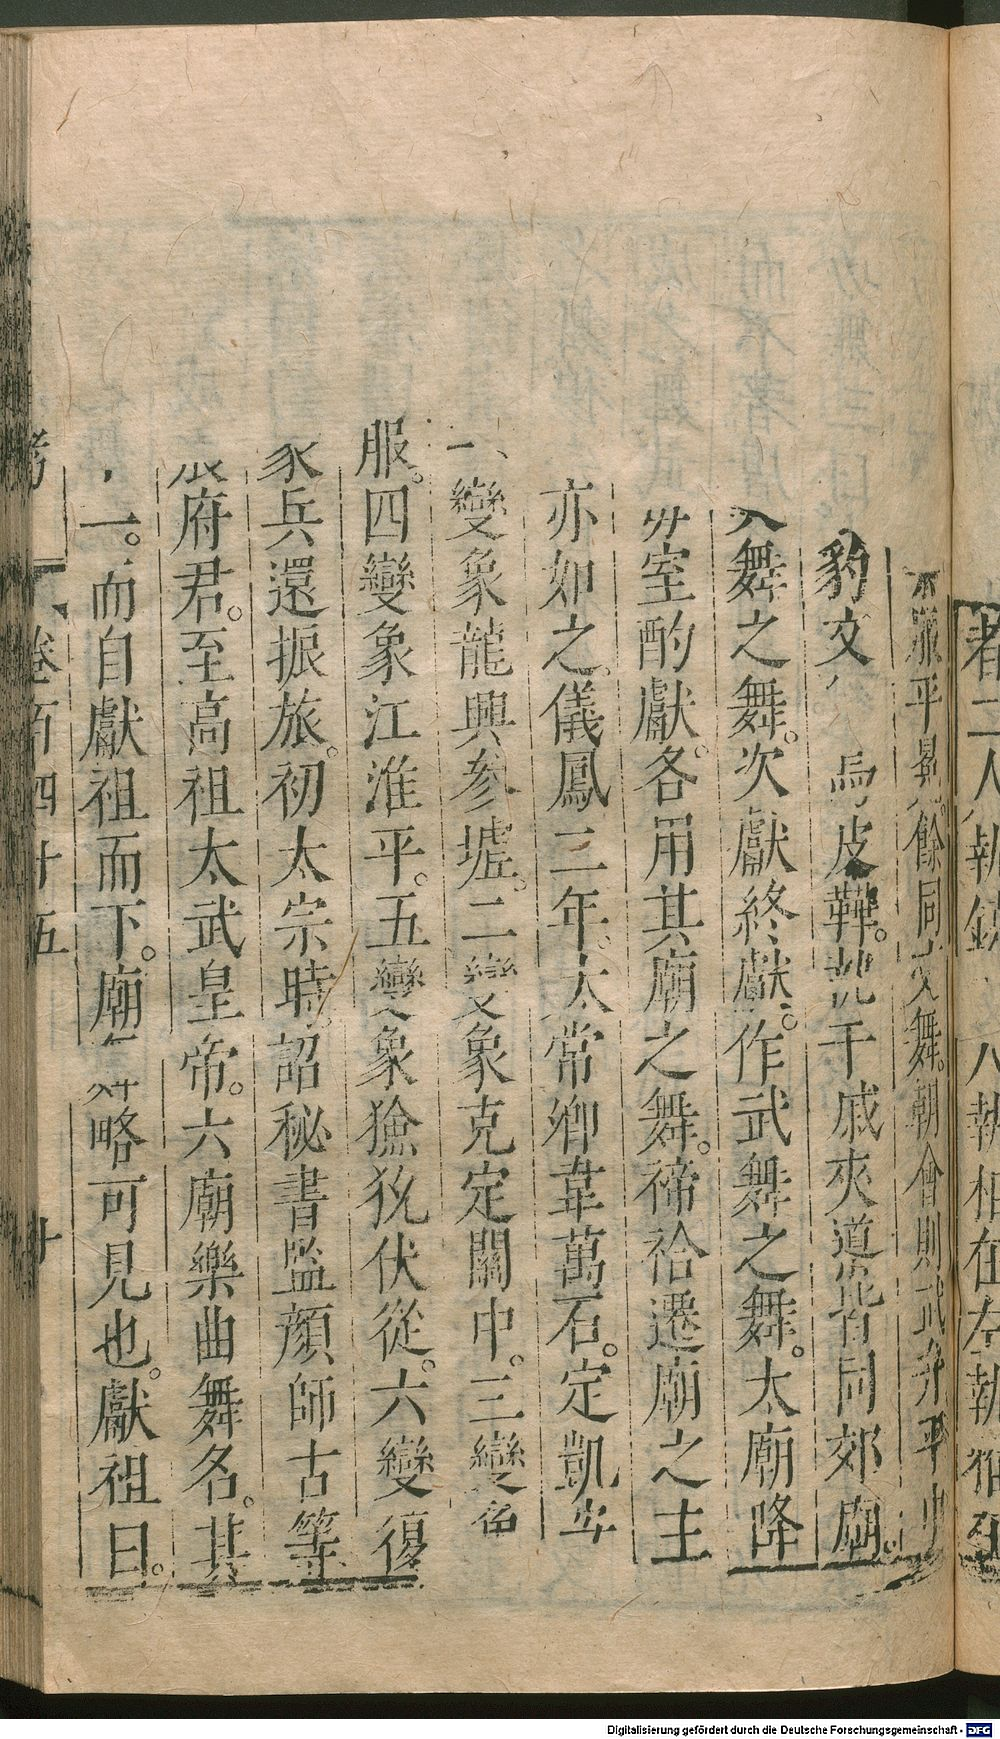 者二人執
人執相在左執
服平冕餘同文舞。朝會則武弁平巾
豹文
烏皮鞾。執干戚夾道皆同郊廟。
舞之舞。次獻終獻。作武舞之舞。太廟降
室酌獻。各用其廟之舞。禘祫遷廟之主
亦如之。儀鳳二年。太常卿韋萬石。定凱安
變象龍興參墟。二變象克定關中。三變
服。四變象江淮平。五變象獫狁伏從。六變復
兵還振旅。初太宗時。詔秘書監顏師古等
府君。至高祖太武皇帝。六廟樂曲舞名。其
一。而自獻祖而下。廟
略可見也。獻祖曰。
考
卷百四十五
Digitalisierung gefördert durch die Deutsche Forschungsgemeinschaft - DFG